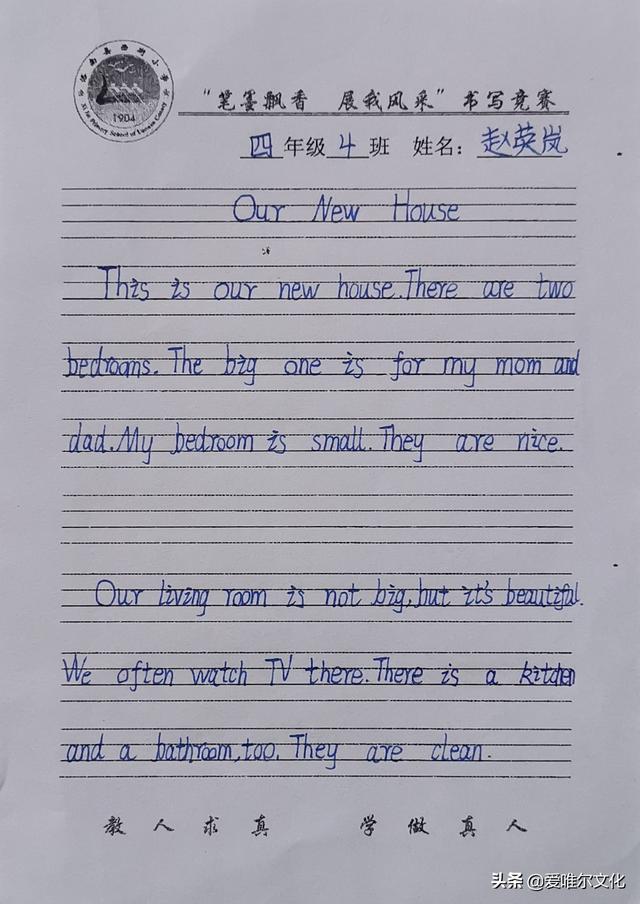 1904
"笔墨飘香 展我风采"书写竞赛
四年级4班 姓名：赵英岚
Our New House
This is our new house. There are two
bedrooms. The big one is for my mom and
dad. My bedroom is small. They are nice.
Our living room is not big, but it's beautiful.
We often watch TV there. There is a kitchen
and a bathroom, too. They are clean.
教人求真 学做真人
头条 @爱唯尔文化